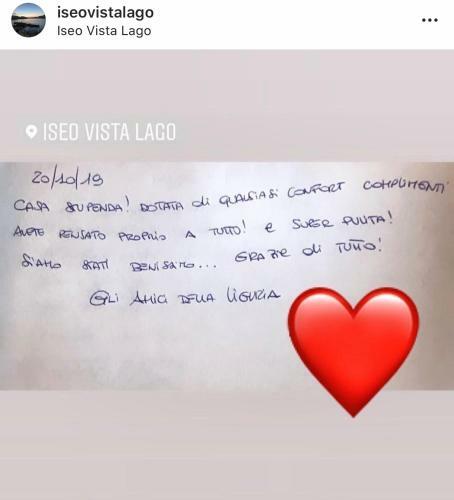 iseovistalago
Iseo Vista Lago
ISEO VISTA LAGO
20/10/19
CASA STUPENDA! DOTATA di QUALSIASI CONFORT COMPLIMENTI
AVETE PENSATO PROPRIO A TUTTO! e SUPER PULITA!
SIAMO STATI BENISSIMO... GRAZIE di TUTTO!
GLI AMICI DELLA LIGURIA